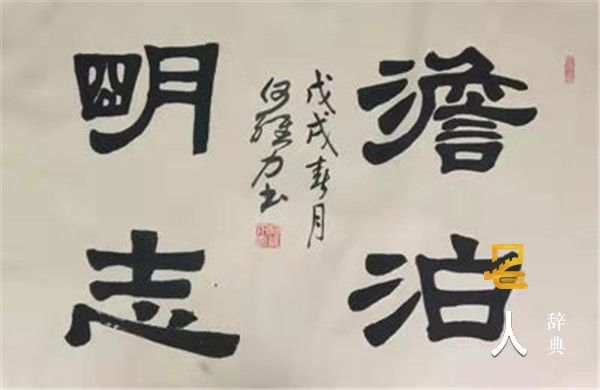 澹泊
明志
戊戌春月
何力书
名人
辞典